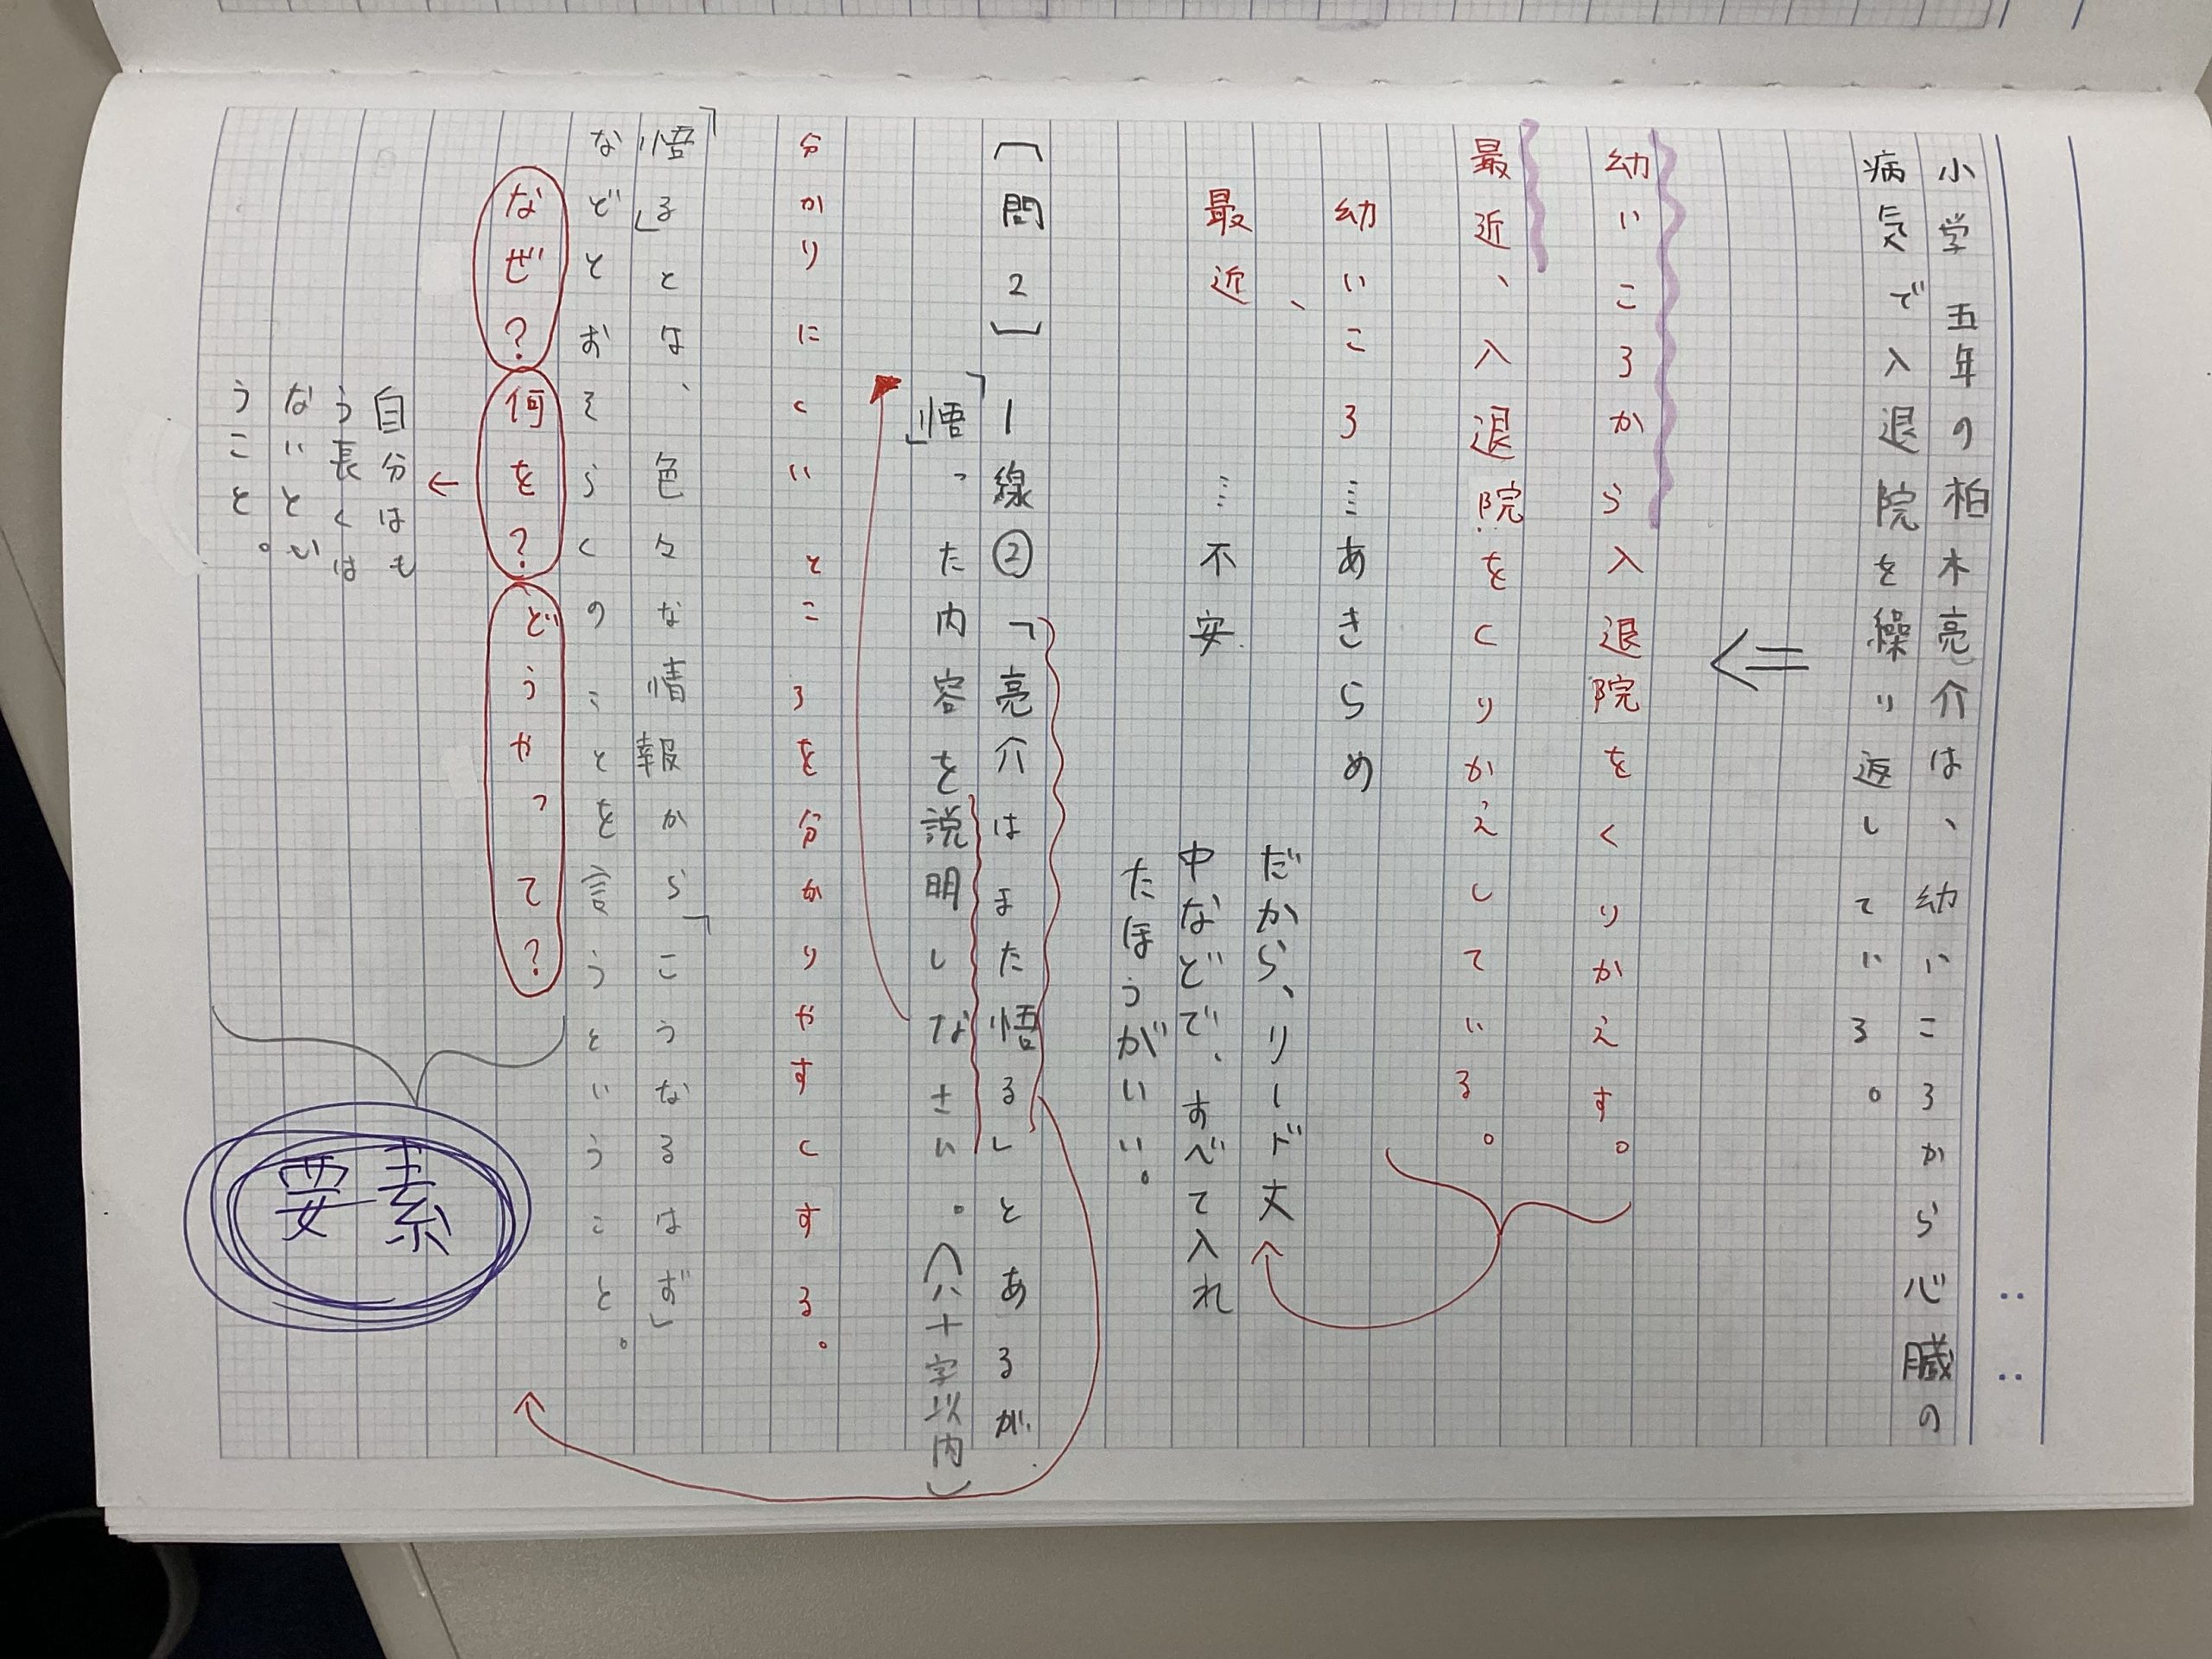 小学五年の柏木亮介は、幼いころから心臓の
病気で入退院を繰り返している。
幼いころから入退院をくりかえす。
最近、入退院をくりかえしている。
幼いころ…あきらめ
最近、…不安
だから、リード丈
中などで、すべて入れ
たほうがいい。
〔問2〕ー線②「亮介はまた悟る」とあるが
「悟」った内容を説明しなさい。(八十字以内)
分かりにくいところを分かりやすくする。
「悟る」とは、色々な情報から「こうなるはず」
などとおそらくのことを言うということ。
なぜ?何を?どうやって?
自分はも
う長くは
ないとい
うこと。
要素